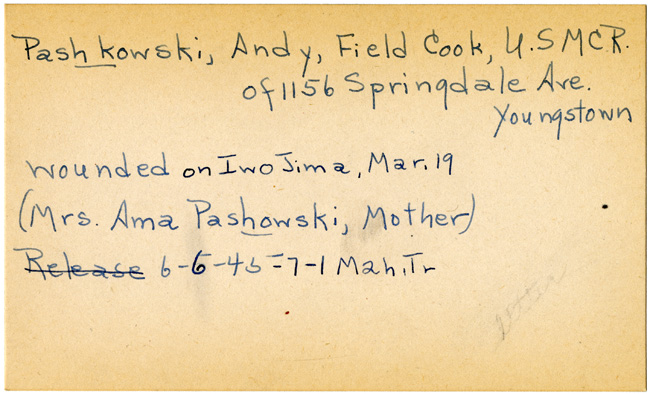 Pashkowski, Andy, Field Cook, U.S.M.C.R.
of 1156 Springdale Ave.
Youngstown
wounded on Iwo Jima, Mar. 19
(Mrs. Ama Pashowski, Mother)
Release 6-6-45=7-1 Mah. Tr